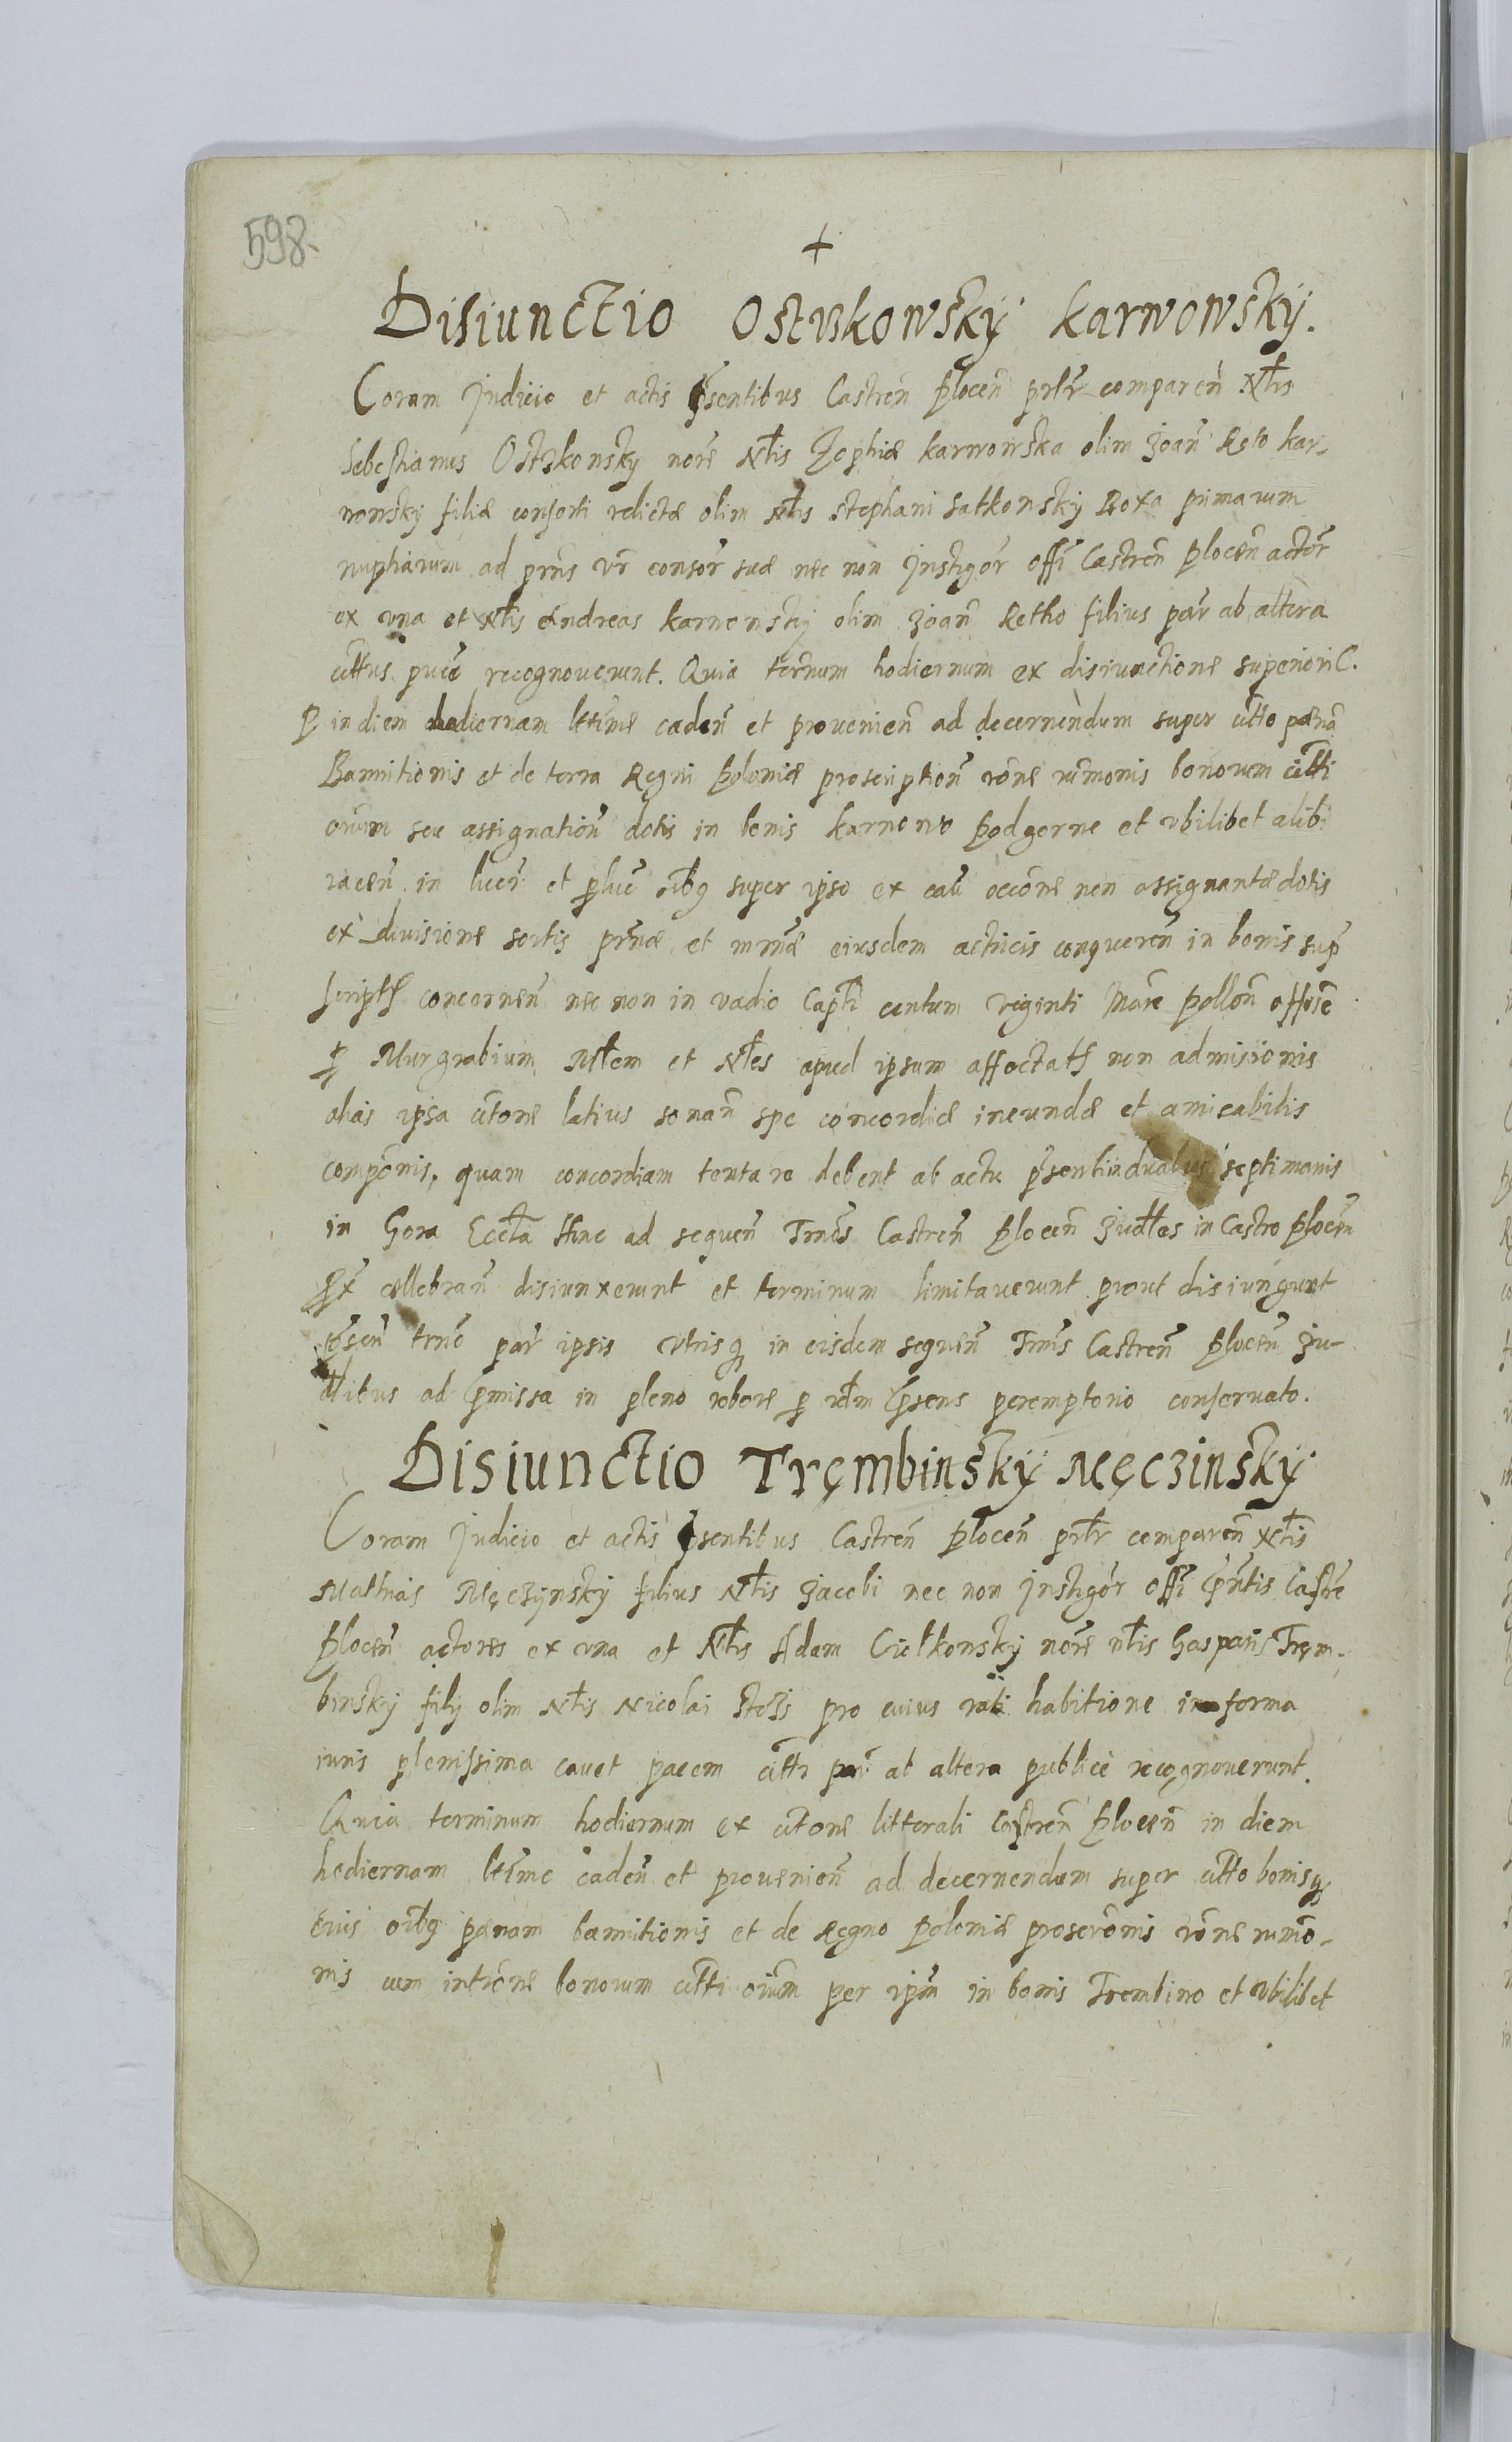 598.
+
Disiunctio Ostvskowskÿ Karwowskÿ.
Coram Judicio et actis p̃sentibus Castreñ Płoceñ pr̃lr compareñ Ntl̃is
Sebestianus Ostzkowsky noĩe Ntl̃is Zophiæ Karwowska olim Joañ Reto Kar-
wowsky filiæ consorti relictæ olim Ntl̃is Stephani Satkowsky Roxa primarum
nuptiarum ad prñs vr̃ consor̃ suæ nec non Instigor̃ offĩ Castreñ Płoceñ actor̃
ex vna et Ntl̃is Andreas Karwowsky olim Joañ Retho filius par̃ ab altera
citt̃us puc̃e recognouerunt. Quia termum hodiernum ex disiunctione superiori C.
P in diem hodiernam ltt̃ime cadeñ et prouenieñ ad decernendum super citt̃o pænã
Bannitionis et de terra Regni Poloniæ proscriptioñ rõne rum̃onis bonorum citt̃i
oĩum seu assignatioñ dotis in bonis Karwowo Podgorne et vbilibet alibi
iaceñ in lucr̃ et pluc̃ ribg super ipso ex caũ occõne non assignantæ dotis
ex diuisione sortis pr̃næ et mr̃næ eiusdem actricis conquereñ in bonis sup̃
scriptʃ concerneñ nec non in vadio Captĩ centum viginti Marc̃ Polloñ offic̃e
P Murgrabium Ml̃em et Ntl̃es apud ipsum affectatʃ non admisionis
alias ipsa citõne latius sonañ spe concordiæ ineundæ et amicabilis
compõnis, quam concordiam tentare debent ab actu p̃senti in duabus septimanis
in Gora Eccl̃a Hinc ad sequeñ Trmõs Castreñ Płoceñ Judl̃es in Castro Płoceñ
Px̃ cællebrañ disiunxerunt et terminum limitauerunt prout disiungunt
p̃señ trñe par̃ ipsis vtrisq in eisdem sequeñ Trm̃s Castreñ Płoceñ Ju-
dl̃ibus ad p̃missa in pleno robore p idm̃ p̃sens peremptorio conseruato.
Disiunctio Tręmbinskÿ Męczinskÿ
Coram Judicio et actis p̃sentibus Castreñ Płoceñ pr̃lr comparen̄ Ntl̃is
Mathias Męczÿnsky filius Ntl̃is Jacobi nec non Instigor̃ offĩ p̃ntis Castre̅
Płoceñ actores ex vna et Ntl̃is Adam Ciołkowsky noĩe ntl̃is Gasparis Tręm-
binsky filÿ olim Ntl̃is Nicolai pro cuius rati habitione in forma
iuris plenissima cauet pacem citt̃i par̃ ab altera publice recognouerunt.
Quia terminum hodiernum ex citõne litterali Castreñ Płoceñ in diem
hodiernam ltt̃ime cadeñ et prouenieñ ad decernendum super citt̃o bonisq
eius oĩbg pænam bannitionis et de Regno Poloniæ proscrõnis rõne rumõ-
nis cum intrõne bonorum citt̃i oĩum per ipm̃ in bonis Trembino et vbilibet